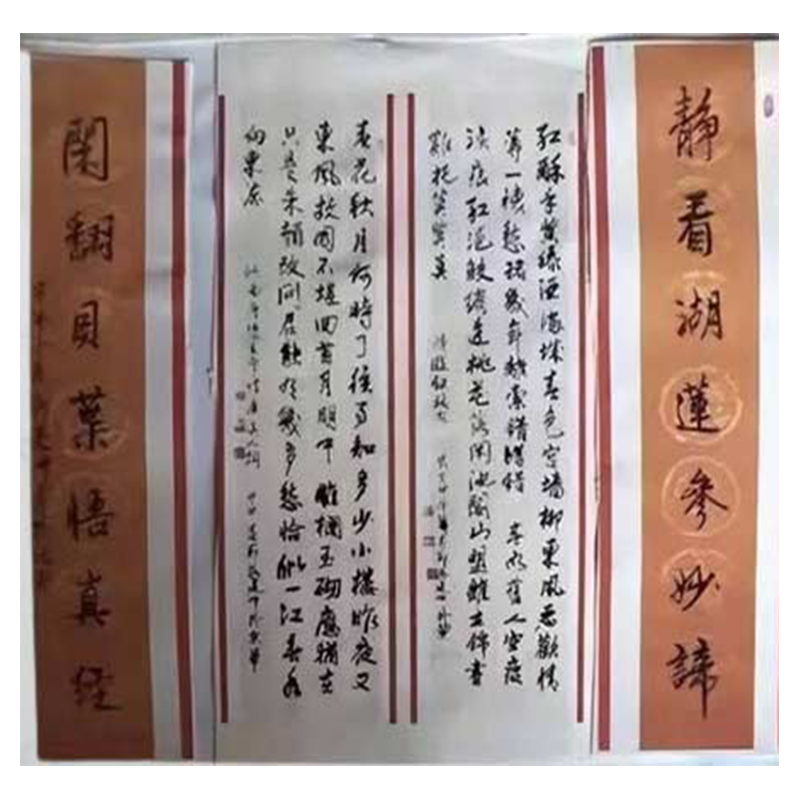 靜看湖蓮參妙諦
紅酥手黄縢酒滿城春色宫墙柳東風惡歡情
薄一懷愁緒幾年離索錯錯錯 春如舊人空瘦
淚痕紅浥鮫綃透桃花落閑池閣山盟雖在錦書
難托莫莫莫
春花秋月何時了往事知多少小樓昨夜又
東風故国不堪回首月明中 雕欄玉砌應猶在
只是朱顏改問君能有幾多愁恰似一江春水
向東流
閑翻貝葉悟真經